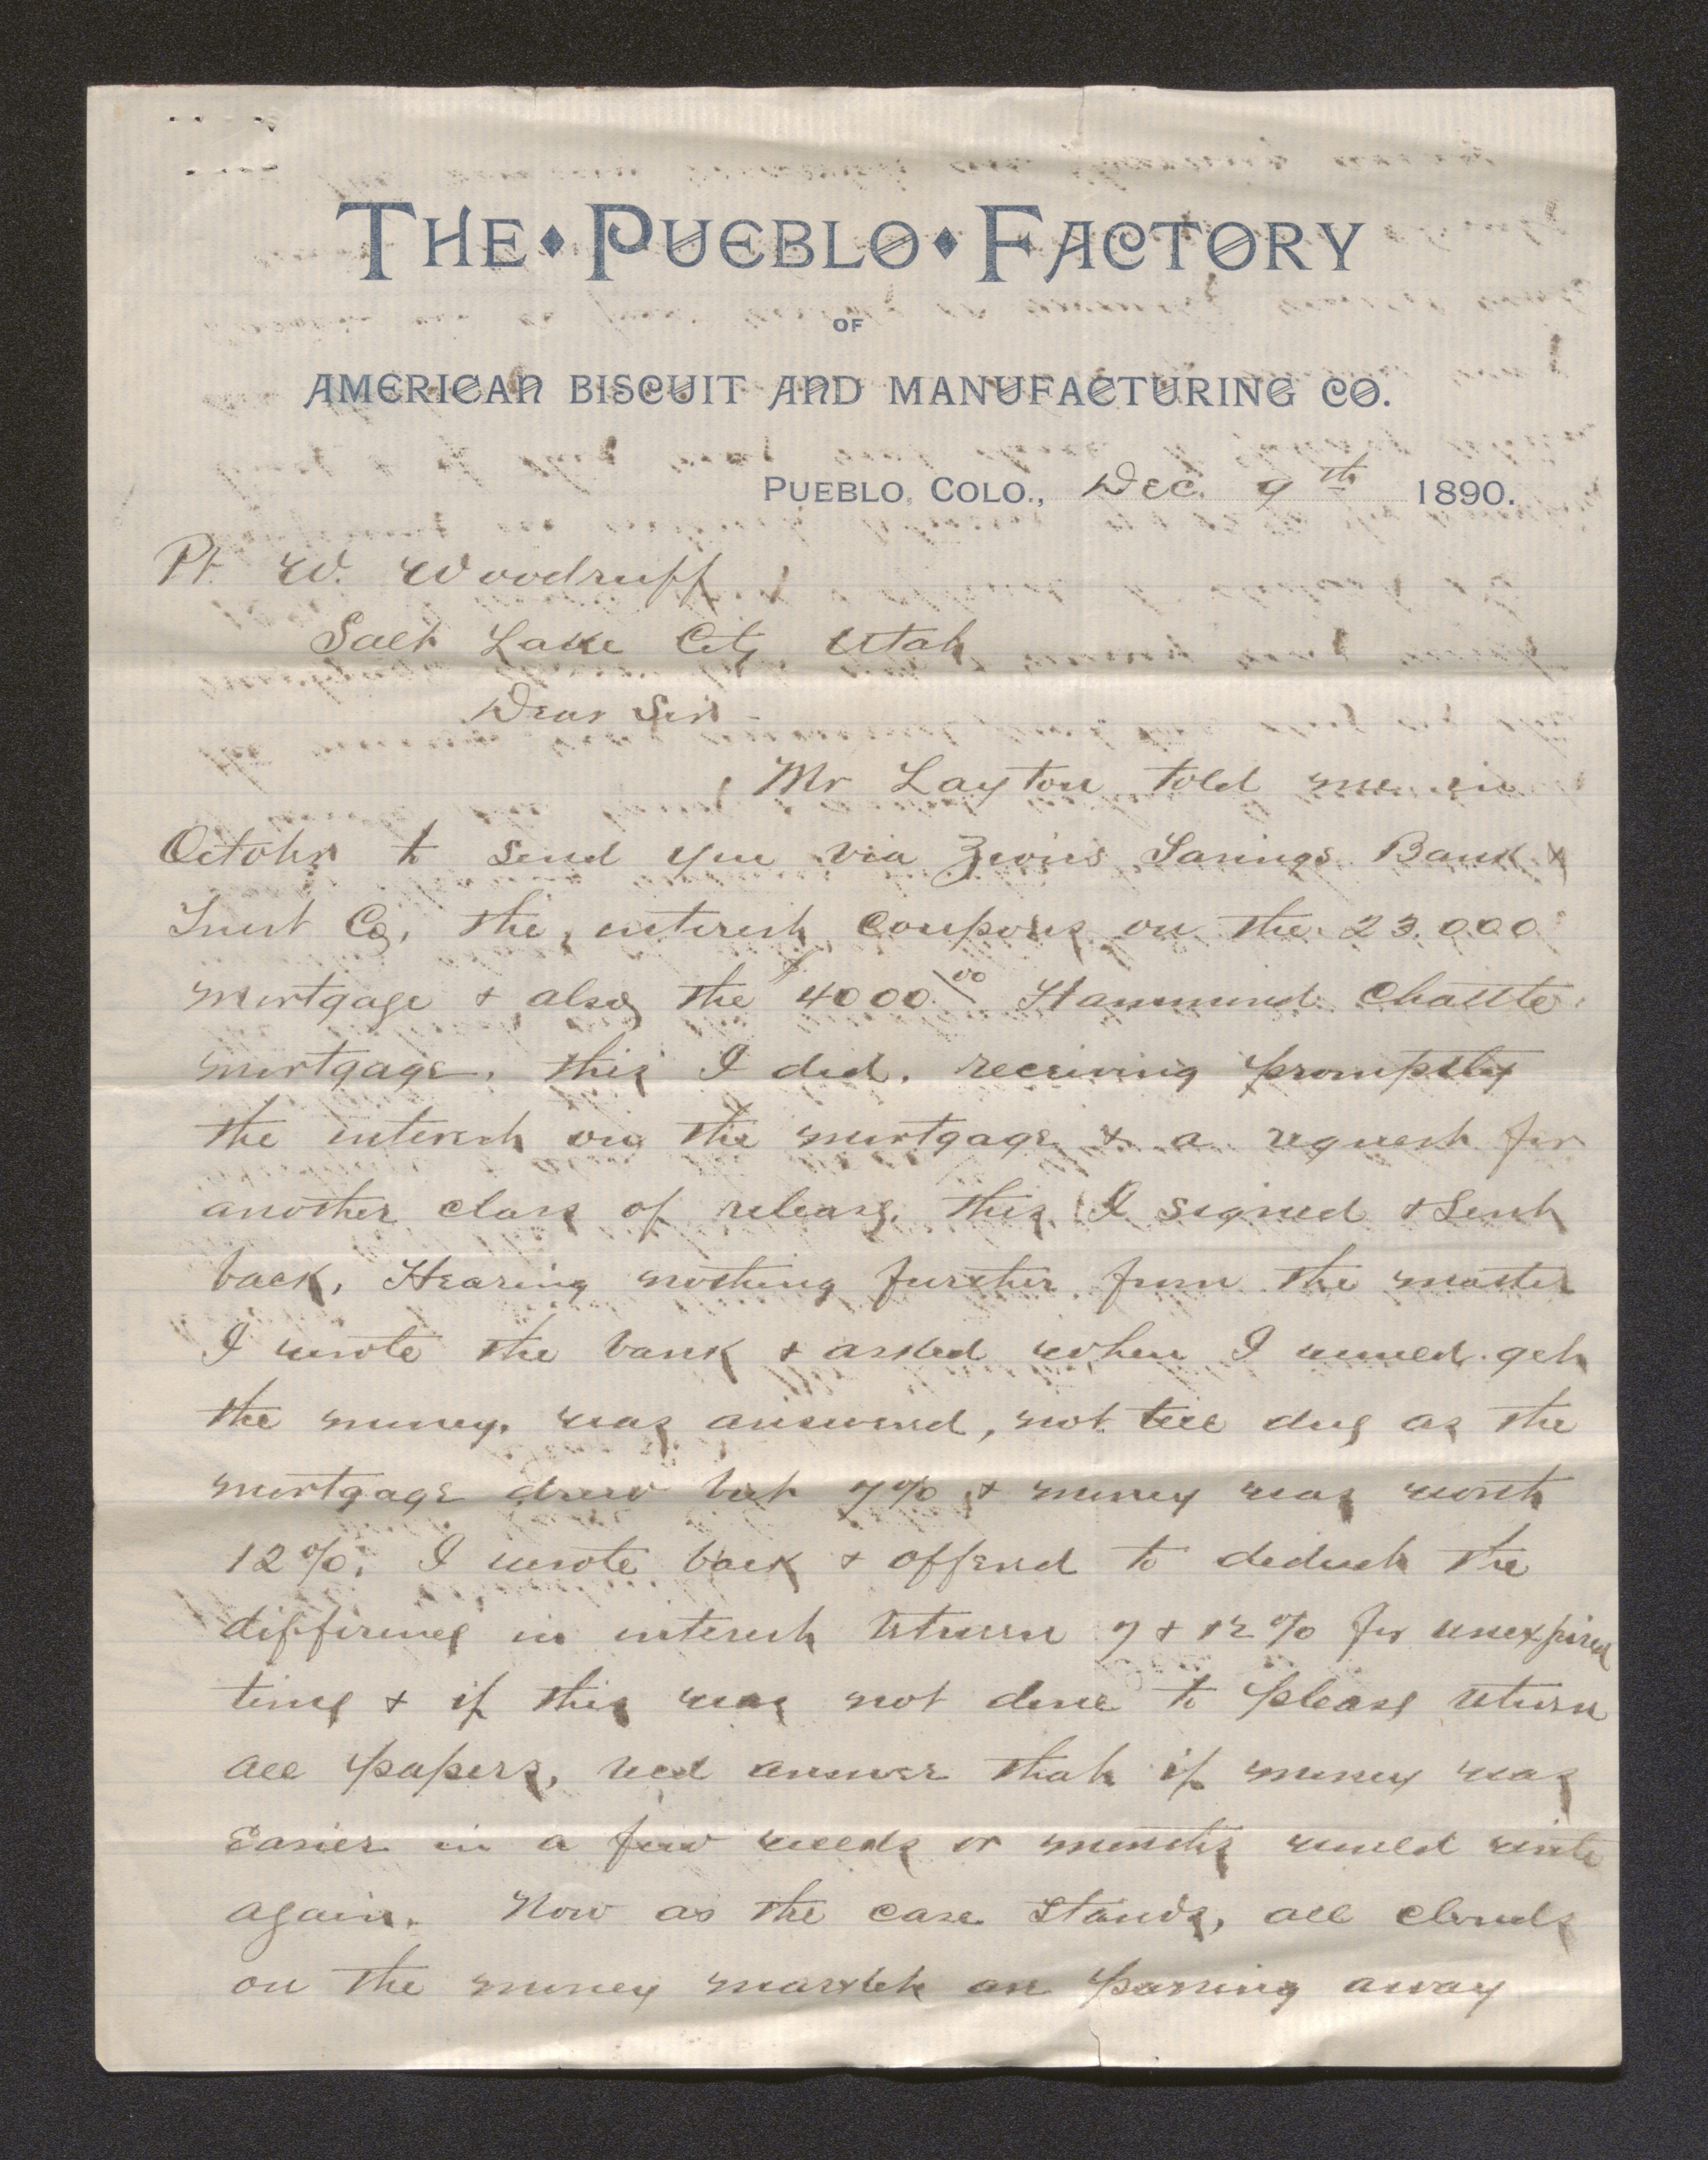 THE ♦ PUEBLO ♦ FACTORY
OF
AMERICAN BISCUIT AND MANUFACTURING CO.
PUEBLO, COLO., Dec. 9th 1890.
Pt. W. Woodruff
Salt Lake City Utah
Dear Sir -
Mr Layton told me in
October to send you via Zion's Savings Bank &
Trust Co, the interest coupons on the 23.000
mortgage & also the $4000.00 Hammond Chatte
mortgage, this I did, receiving promptly
the interest on the mortgage & a request for
another class of release, this I signed & sent
back, Hearing nothing further from the matter
I wrote the bank & asked when I would get
the money, was answered, not till due as the
mortgage drew but 7% & money was worth
12%, I wrote back & offered to deduct the
difference in interest between 7 & 12% for unexpired
time & if this was not done to please return
all papers, recd answer that if money was
easier in a few weeks or months would write
again. Now as the case stands, all clouds
on the money market are passing away